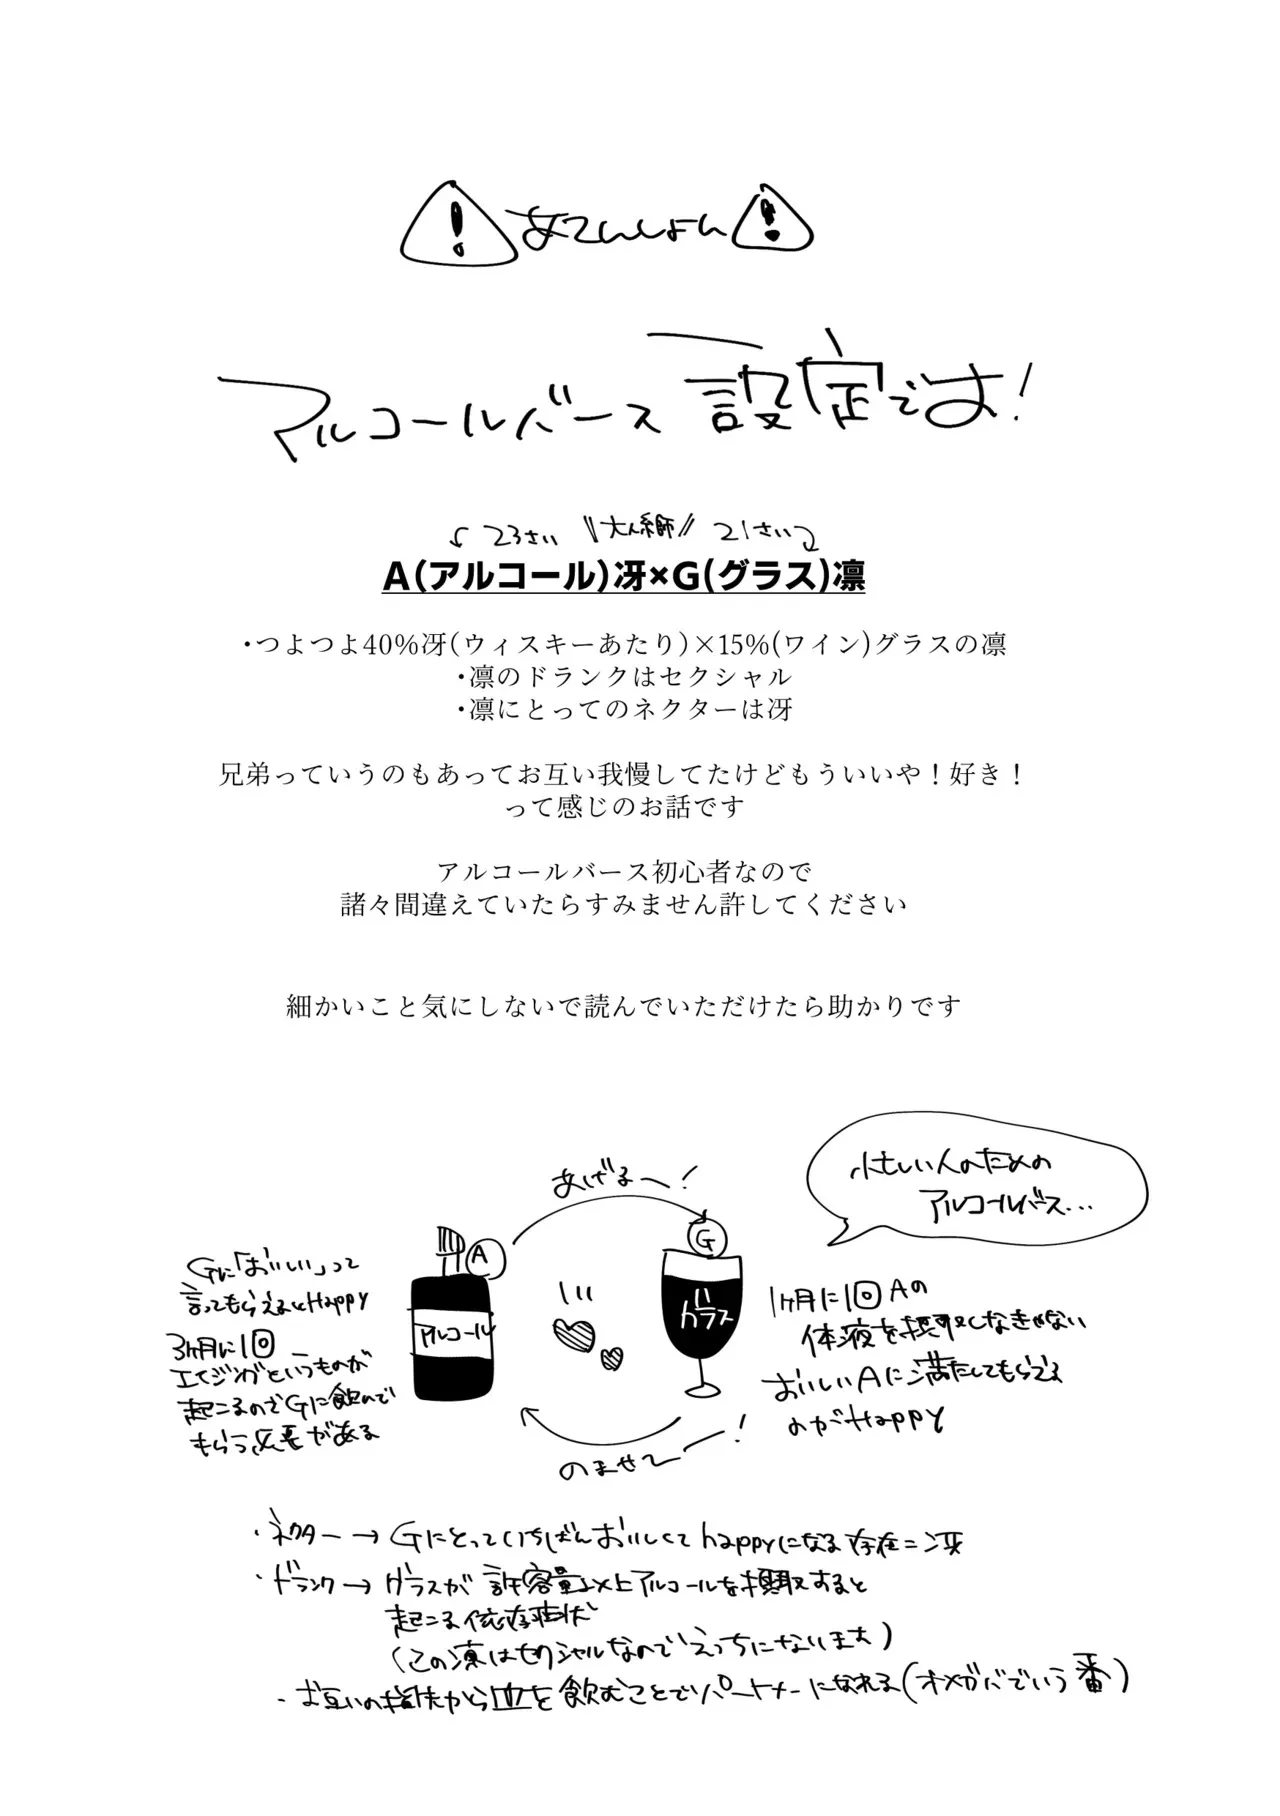 あてんしょん
アルコールバース設定です!
23さい \\大人糸師// 21さい
A(アルコール)冴×G(グラス)凛
・つよつよ40%冴(ウィスキーあたり)×15%(ワイン)グラスの凛
・凛のドランクはセクシャル
・凛にとってのネクターは冴
兄弟っていうのもあってお互い我慢してたけどもういいや！好き！
って感じのお話です
アルコールバース初心者なので
諸々間違えていたらすみません許してください
細かいこと気にしないで読んでいただけたら助かりです
忙しい人のための
アルコールバース...
あげる〜!
A
G
アルコール
グラス
Gに「おいしい」って
言ってもらえるとHappy
3ヶ月に1回
エイジングというものが
起こるのでGに飲んで
もらう必要がある
1ヶ月に1回Aの
体液を摂取しなきゃない
おいしいAに満たしてもらえる
のがHappy
のませて〜!
・ネクター→Gにとっていちばんおいしくてhappyになる存在=冴
・ドランク→グラスが許容量以上アルコールを摂取すると
起こる依存症状
(この凛はセクシャルなのでえっちになります)
・お互いの指先から血を飲むことでパートナーになれる(オメガバでいう番)